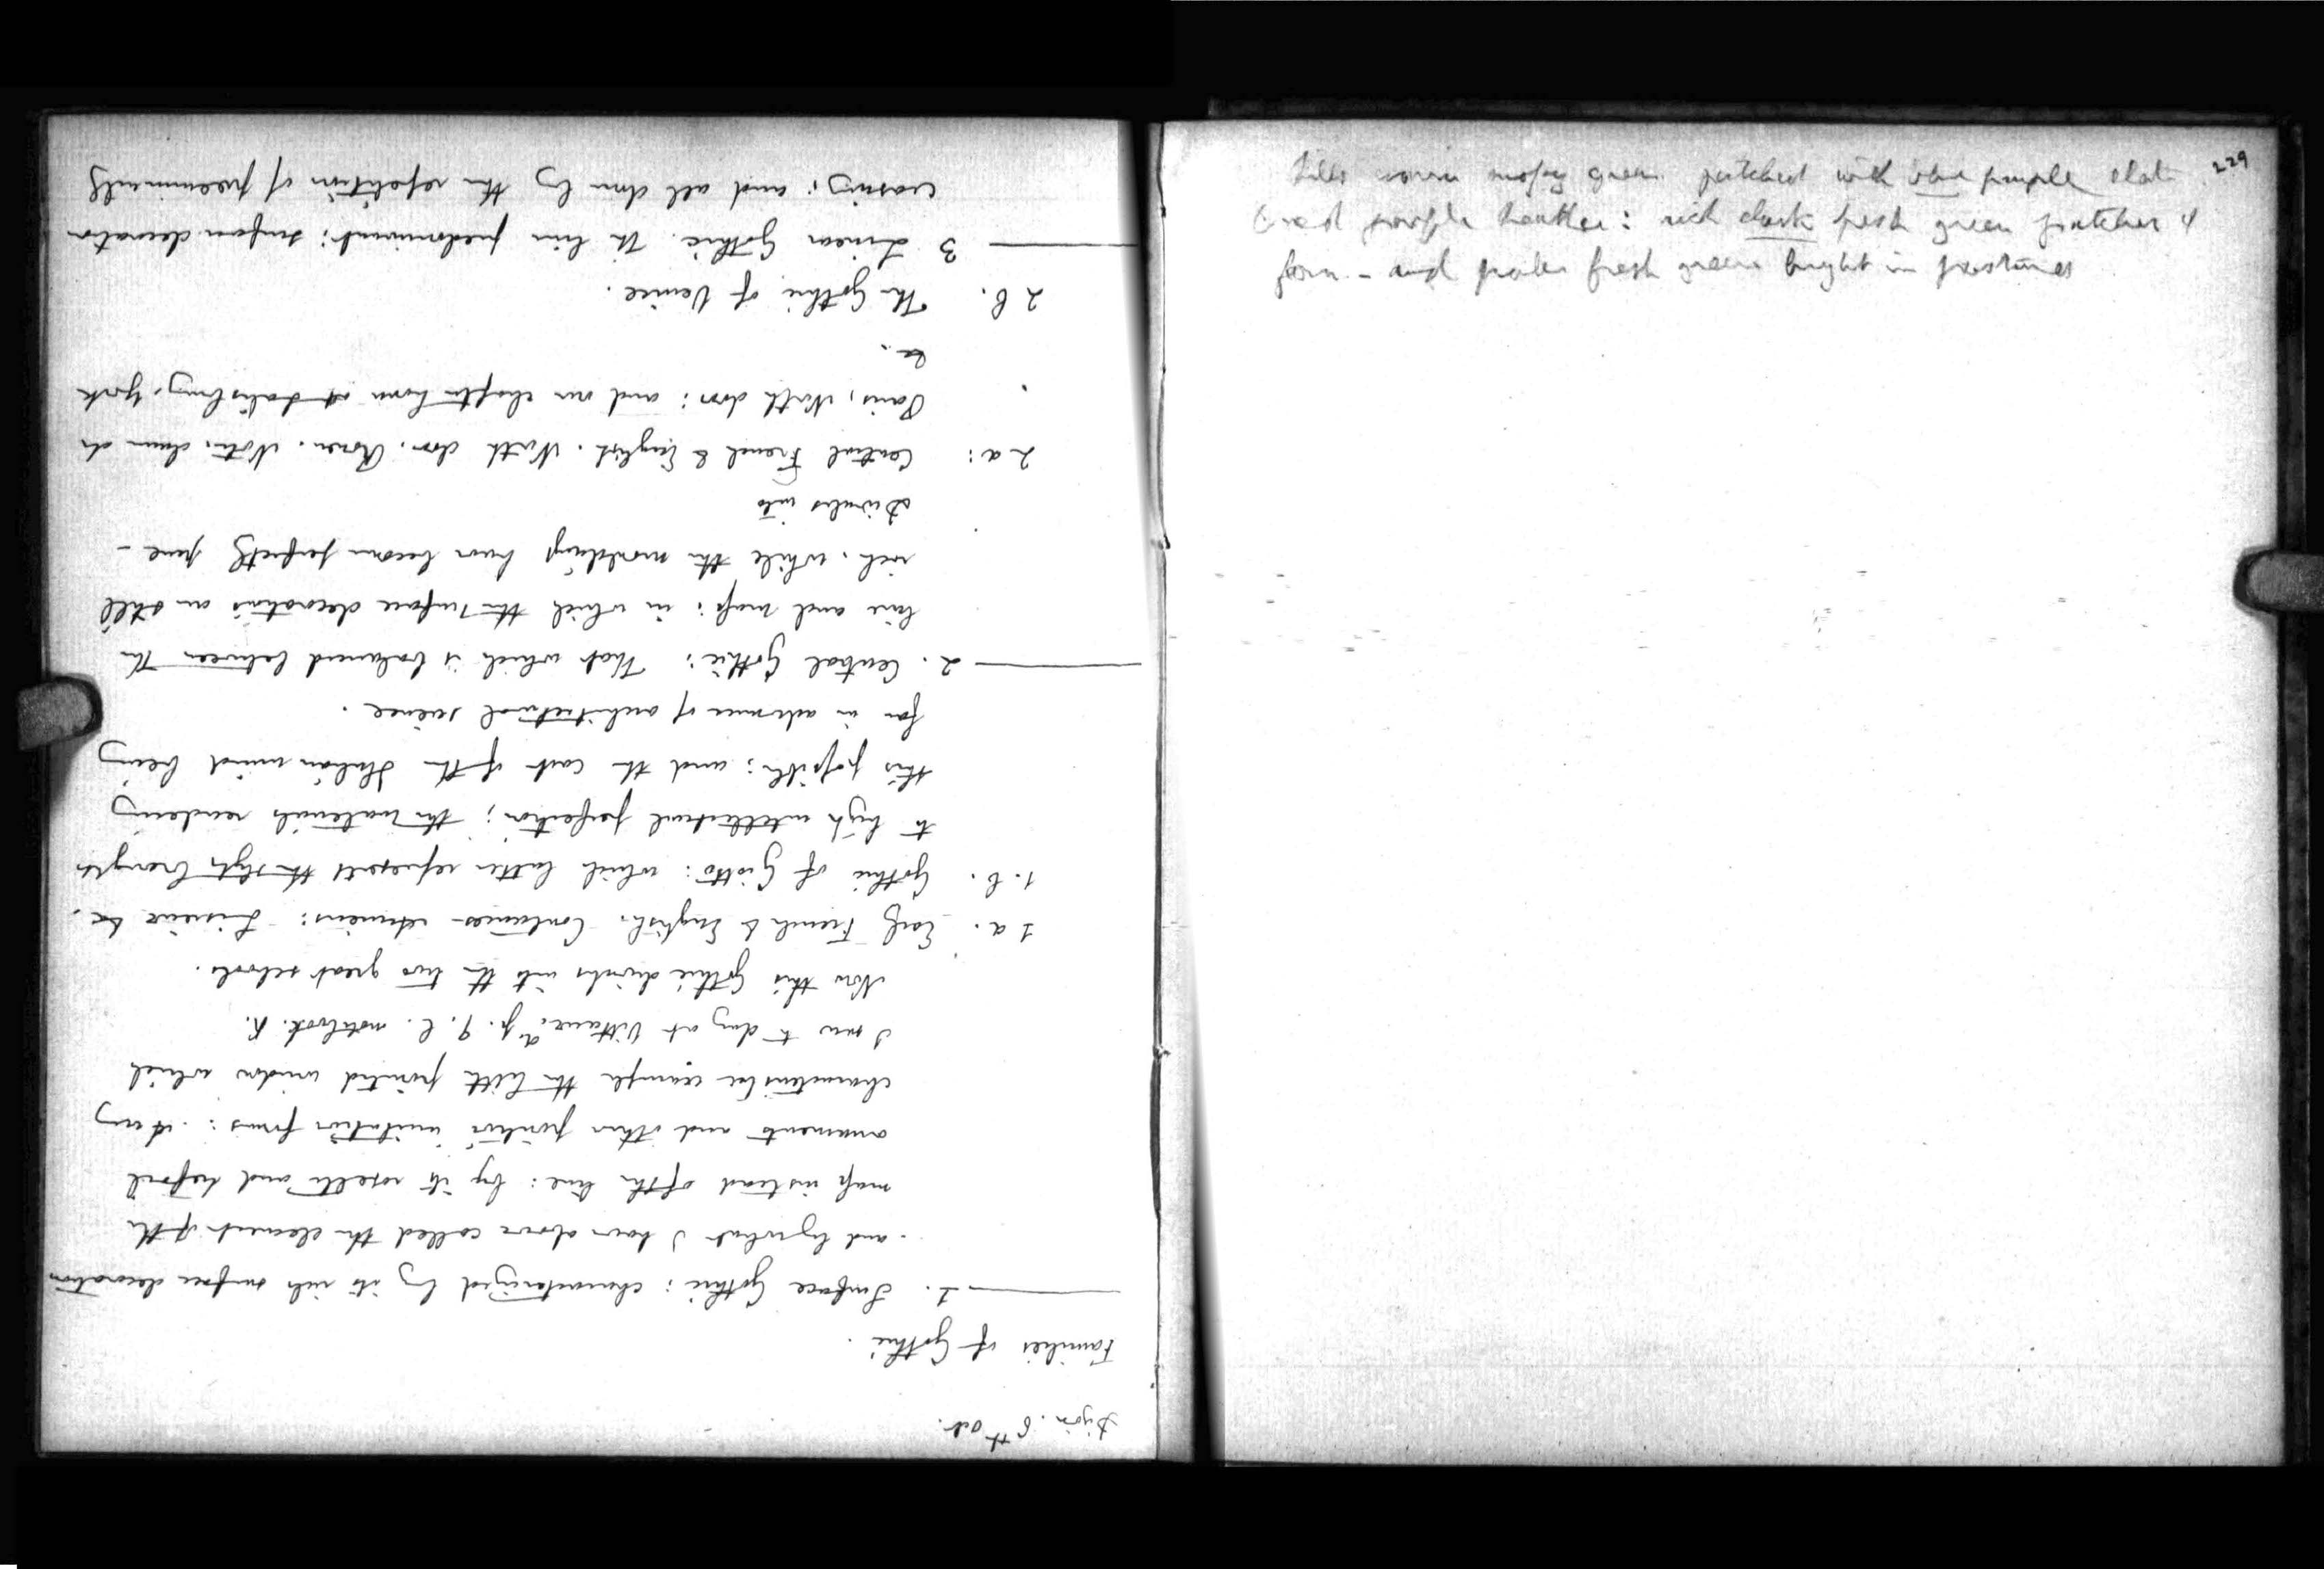 Dijon. 6th Oct.
Families of Gothic.
1. Surface Gothic: characterized by its rich surface decoration
and by what I have above called the element of the
mass instead of the line: by its rosette and trefoil
ornaments and other pointed imitation forms:
characteristic example the little pointed window which
I saw to day at Vitteaux, p. 9. l. notebook. K.
Now this Gothic divides into the two great schools.
1 a. Early French & English. Coutances: Lisieux &c.
1. b. Gothic of Giotto: which latter represents the style brought
to high intellectual perfection; the materials rendering
this possible: and the cast of the Italian mind being
far in advance of architectural science.
2. Central Gothic: That which is balanced between the
line and mass: in which the surface decorations are still
rich, while the mouldings have become perfectly fine -
Divides into
2 a: Central French & English. North door, Rouen. Notre dame de
Paris, North door: and our chapter house at Salisbury, York
&c.
2 b. The Gothic of Venice.
3 Linear Gothic. The line predominant: surface decoration
ceasing: and all done by the repetition of
229
hills warm mossy green patched with blue purple slate
purple heather: rich dark fresh green patches of
fern - and paler fresh green bright in pastures